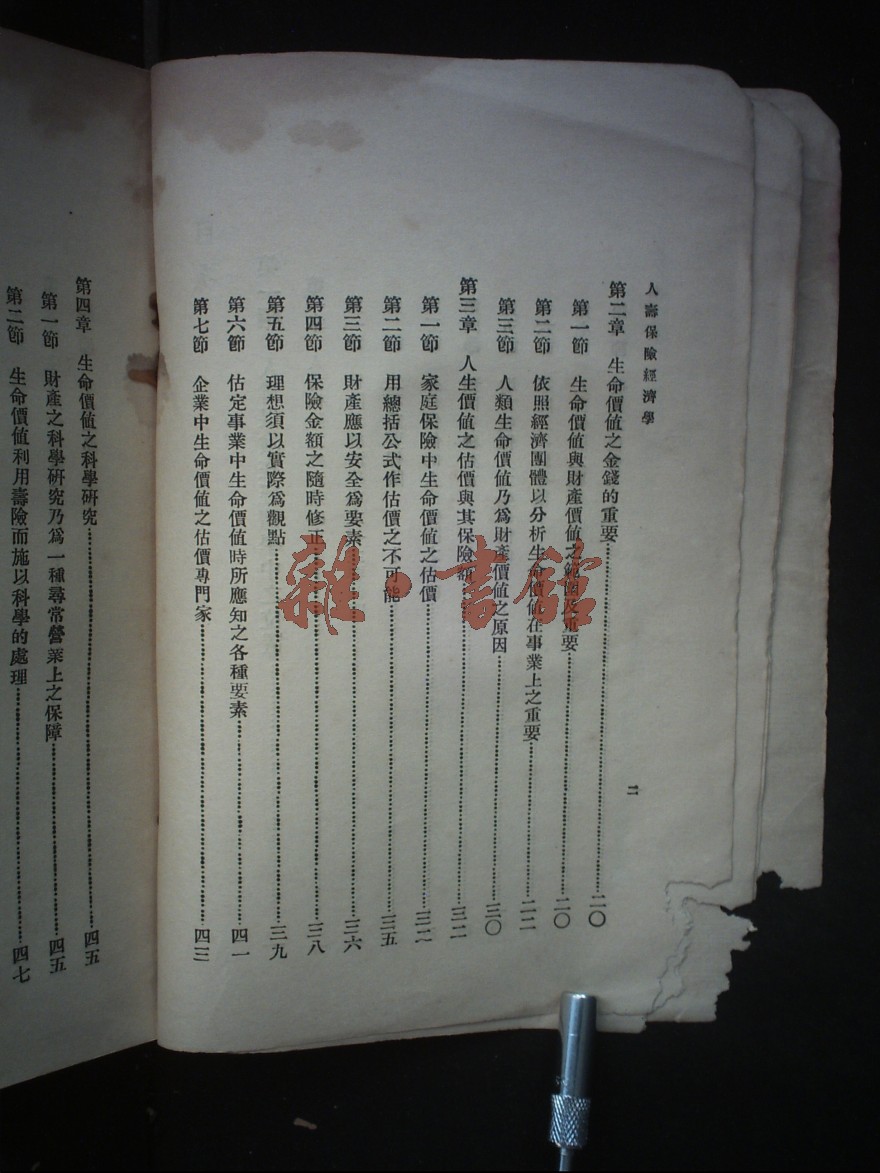 人壽保險經濟學
第二章 生命價值之金錢的重要……二〇
第一節 生命價值與財產價值之範圍及重要……二〇
第二節 依照經濟團體以分析生命價值在事業上之重要……二二
第三節 人類生命價值乃爲財產價值之原因……三〇
第三章 人生價值之估價與其保險額……三二
第一節 家庭保險中生命價值之估價……三二
第二節 用總括公式作估價之不可能……三五
第三節 財產應以安全爲要素……三六
第四節 保險金額之隨時修正……三八
第五節 理想須以實際爲觀點……三九
第六節 估定事業中生命價值時所應知之各種要素……四一
第七節 企業中生命價值之估價專門家……四三
二
第四章 生命價值之科學研究……四五
第一節 財產之科學研究乃爲一種尋常營業上之保障……四五
第二節 生命價值利用壽險而施以科學的處理……四七
雜·書館